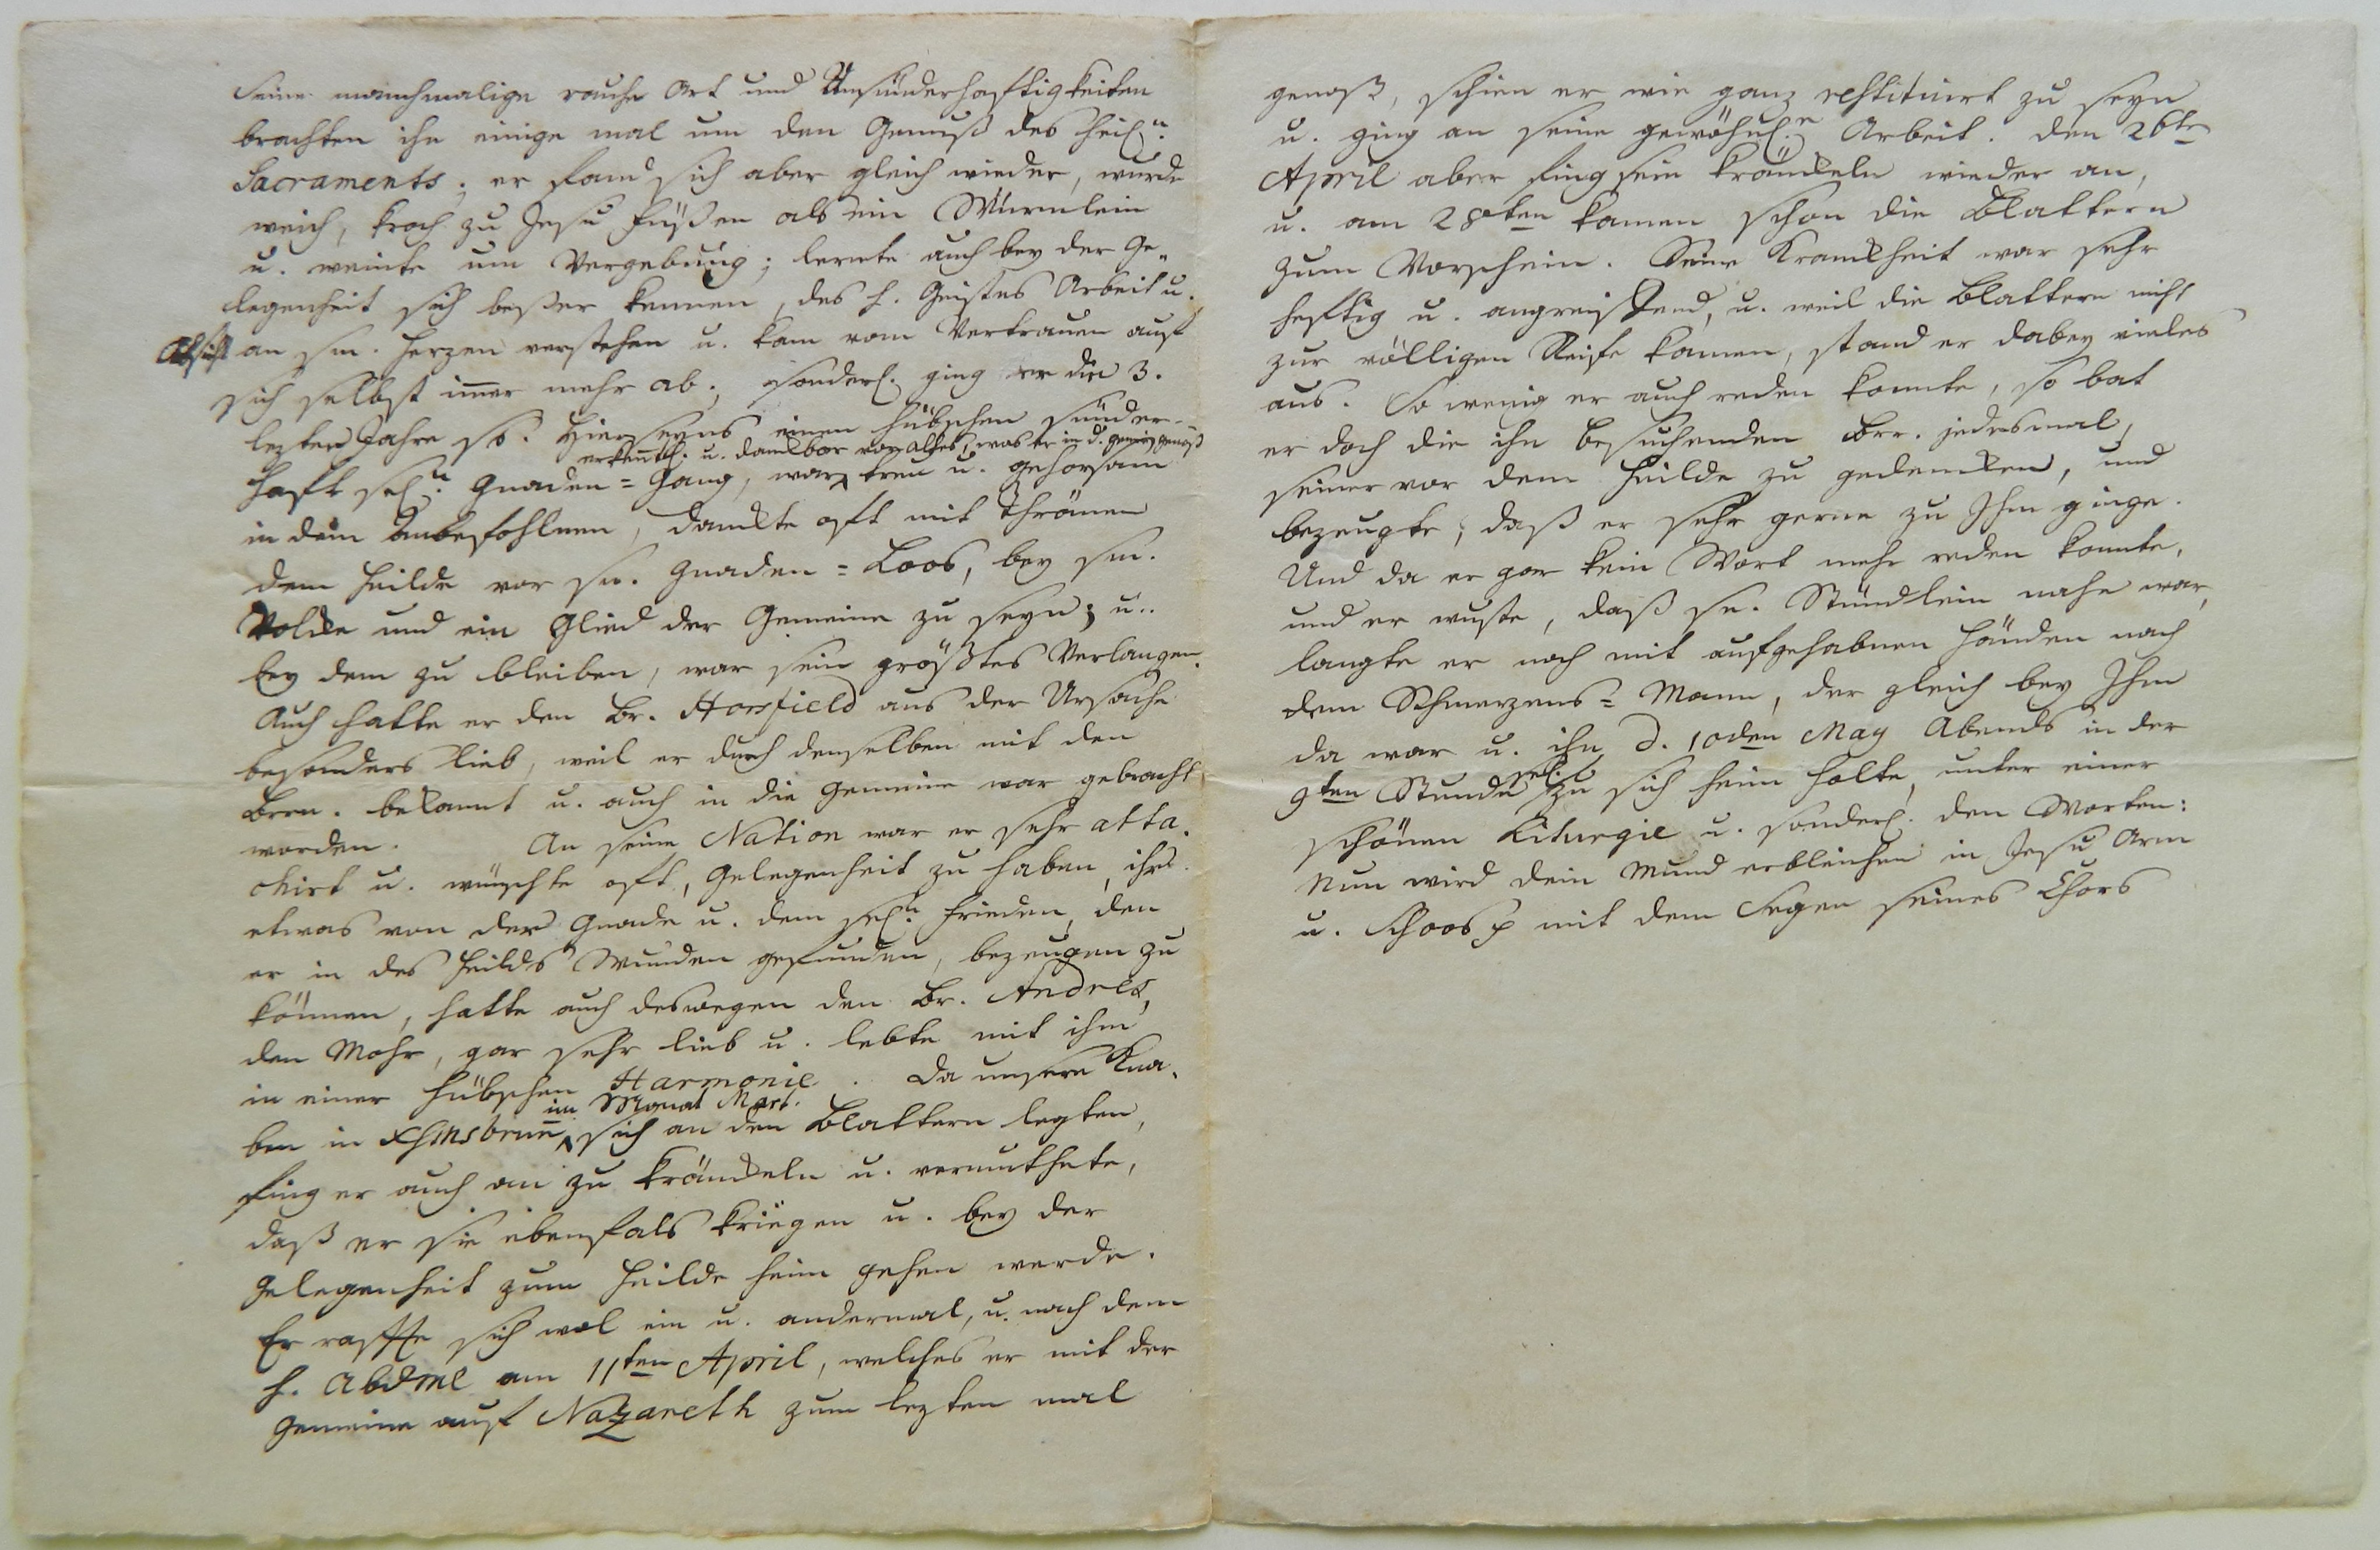 Seine manchmalige rauhe Art und Unsünderhaftigkeiten
brachten ihn einige mal um den Genuß des heilgn.
Sacraments; er fand sich aber gleich wieder, wurde
weich, kroch zu Jesu Füßen als ein Würmlein
u. weinte um Vergebung; lernte auch bey der Ge-
legenheit sich beßer kennen, des h. Geistes Arbeit u.
Absicht an sm. Herzen verstehen u. kam vom Vertrauen auf
sich selbst immer mehr ab; sonderl. ging er die 3.
lezten Jahre ss. Hierseyns einen hübschen sünder-
erkenntl. u. dankbar vor alles, was er in d. Gemeine genoß
haft sel.n Gnaden-Gang, war treu u. gehorsam
in dem Anbefohlnen, dankte oft mit Thränen
dem Heilde vor sn. Gnaden-Loos, bey sm.
Volke und ein Glied der Gemeine zu seyn; u.
bey dem zu bleiben, war sein größtes Verlangen.
Auch hatte er den Br. Horsfield aus der Ursache
besonders lieb, weil er durch denselben mit den
Brrn. bekannt u. auch in die Gemeine war gebracht
worden. An seine Nation war er sehr atta-
chirt u. wünschte oft, Gelegenheit zu haben, ihr
etwas von der Gnade u. dem sel.n Frieden, den
er in des Heilds Wunden gefunden, bezeugen zu
können, hatte auch deswegen den Br. Andres,
den Mohr, gar sehr lieb u. lebte mit ihm
in einer hübschen Harmonie. Da unsere Kna-
im Monat Mart.
ben in Xstiansbrunn sich an den Blattern legten,
fing er auch an zu kränkeln u. vermuthete,
daß er sie ebenfals kriegen u. bey der
Gelegenheit zum Heilde heim gehen werde.
Er raffte sich wol ein u. andermal, u. nach dem
h. Abdml am 11ten April, welches er mit der
Gemeine auf Nazareth zum lezten mal
genoß, schien er wie ganz restituirt zu seyn
u. ging an seine gewöhnl.e Arbeit. Den 26ten
April aber fing sein kränkeln wieder an,
u. am 28ten kamen schon die Blattern
zum Vorschein. Seine Krankheit war sehr
heftig u. angreiffend, u. weil die Blattern nicht
zur völligen Reife kamen, stand er dabey vieles
aus. So wenig er auch reden konnte, so bat
er doch die ihn besuchenden Brr. jedesmal,
seiner vor dem Heilde zu gedenken, und
bezeugte, daß er sehr gerne zu Ihm ginge.
Und da er gar kein Wort mehr reden konnte,
und er wuste, daß sn. Stündlein nahe war,
langte er noch mit aufgehabnen Händen nach
dem Schmerzens-Mann, der gleich bey Ihm
da war u. ihn d. 10den May Abends in der
9ten Stunde sel. zu sich heim holte, unter einer
schönen Liturgie u. sonderl. den Worten:
Nun wird dein Mund erbleichen in Jesu Arm
u. Schoos p mit dem Segen seines Chors